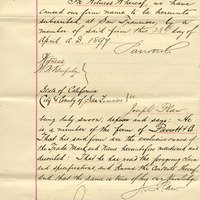 In Witness Whereof, we have
caused our firm name to be hereunto
subscribed, at San Francisco, by a
member of said firm this 28th day of
April A.D. 1897.
Witness
State of California
City & County of San Francisco } ss.
Joseph
being duly sworn, deposes and says: He
is a member of the firm of Parrott & Co.
That his said firm are the exclusive owners of
the Trade Mark and Name hereinbefore mentioned and
described. That he has read the foregoing claim
and specifications, and knows the Contents thereof,
and that the same is true of his own